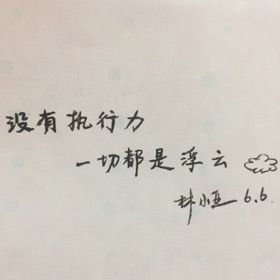 没有执行力
一切都是浮云
林小亚 6.6.